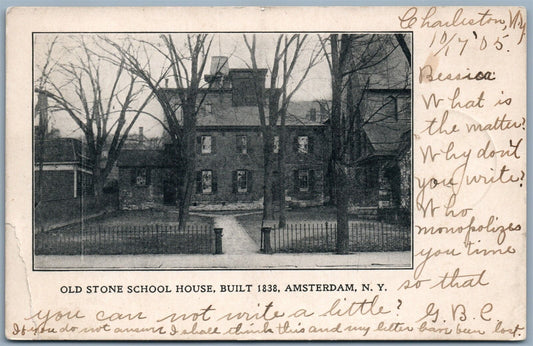 Charleston, N.Y.
10/17'05.
Bessica
What is
the matter?
Why don't
you write?
Who
monopolizes
your time
so that
OLD STONE SCHOOL HOUSE, BUILT 1838, AMSTERDAM, N. Y.
you can not write a little? G. B. C.
If you do not answer I shall think this and my letter have been lost.